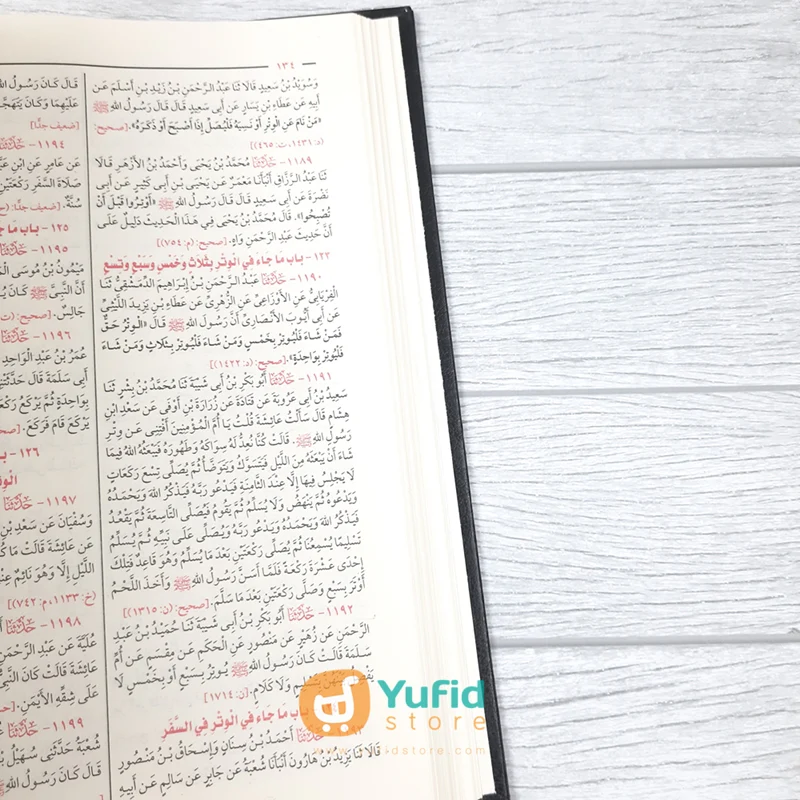 ١٣٤
وَسُوَيْدُ بْنُ سَعِيدٍ قَالَا ثَنَا عَبْدُ الرَّحْمَنِ بْنُ زَيْدِ بْنِ أَسْلَمَ عَنْ
أَبِيهِ عَنْ عَطَاءِ بْنِ يَسَارٍ عَنْ أَبِي سَعِيدٍ قَالَ قَالَ رَسُولُ اللهِ ﷺ
«مَنْ نَامَ عَنِ الْوِتْرِ أَوْ نَسِيَهُ فَلْيُصَلِّ إِذَا أَصْبَحَ أَوْ ذَكَرَهُ». [صحيح:
(د: ١٤٣١، ت: ٤٦٥)]
١١٨٩- حَدَّثَنَا مُحَمَّدُ بْنُ يَحْيَى وَأَحْمَدُ بْنُ الْأَزْهَرِ قَالَا
ثَنَا عَبْدُ الرَّزَّاقِ أَنْبَأَنَا مَعْمَرٌ عَنْ يَحْيَى بْنِ أَبِي كَثِيرٍ عَنْ أَبِي
نَضْرَةَ عَنْ أَبِي سَعِيدٍ قَالَ قَالَ رَسُولُ اللهِ ﷺ «أَوْتِرُوا قَبْلَ أَنْ
تُصْبِحُوا». قَالَ مُحَمَّدُ بْنُ يَحْيَى فِي هَذَا الْحَدِيثِ دَلِيلٌ عَلَى
أَنَّ حَدِيثَ عَبْدِ الرَّحْمَنِ وَاهٍ. [صحيح: (م: ٧٥٤)]
١٢٣- باب مَا جَاءَ فِي الْوِتْرِ بِثَلَاثٍ وَخَمْسٍ وَسَبْعٍ وَتِسْعٍ
١١٩٠- حَدَّثَنَا عَبْدُ الرَّحْمَنِ بْنُ إِبْرَاهِيمَ الدِّمَشْقِيُّ ثَنَا
الْفِرْيَابِيُّ عَنِ الْأَوْزَاعِيِّ عَنِ الزُّهْرِيِّ عَنْ عَطَاءِ بْنِ يَزِيدَ اللَّيْثِيِّ
عَنْ أَبِي أَيُّوبَ الْأَنْصَارِيِّ أَنَّ رَسُولَ اللهِ ﷺ قَالَ «الْوِتْرُ حَقٌّ
فَمَنْ شَاءَ فَلْيُوتِرْ بِخَمْسٍ وَمَنْ شَاءَ فَلْيُوتِرْ بِثَلَاثٍ وَمَنْ شَاءَ
فَلْيُوتِرْ بِوَاحِدَةٍ». [صحيح: (د: ١٤٢٢)]
١١٩١- حَدَّثَنَا أَبُو بَكْرِ بْنُ أَبِي شَيْبَةَ ثَنَا مُحَمَّدُ بْنُ بِشْرٍ ثَنَا
سَعِيدُ بْنُ أَبِي عَرُوبَةَ عَنْ قَتَادَةَ عَنْ زُرَارَةَ بْنِ أَوْفَى عَنْ سَعْدِ ابْنِ
هِشَامٍ قَالَ سَأَلْتُ عَائِشَةَ قُلْتُ يَا أُمَّ الْمُؤْمِنِينَ أَفْتِينِي عَنْ وِتْرِ
رَسُولِ اللهِ ﷺ. قَالَتْ كُنَّا نُعِدُّ لَهُ سِوَاكَهُ وَطَهُورَهُ فَيَبْعَثُهُ اللهُ فِيمَا
شَاءَ أَنْ يَبْعَثَهُ مِنَ اللَّيْلِ فَيَتَسَوَّكُ وَيَتَوَضَّأُ ثُمَّ يُصَلِّي تِسْعَ رَكَعَاتٍ
لَا يَجْلِسُ فِيهَا إِلَّا عِنْدَ الثَّامِنَةِ فَيَدْعُو رَبَّهُ فَيَذْكُرُ اللهَ وَيَحْمَدُهُ
وَيَدْعُوهُ ثُمَّ يَنْهَضُ وَلَا يُسَلِّمُ ثُمَّ يَقُومُ فَيُصَلِّي التَّاسِعَةَ ثُمَّ يَقْعُدُ
فَيَذْكُرُ اللهَ وَيَحْمَدُهُ وَيَدْعُو رَبَّهُ وَيُصَلِّي عَلَى نَبِيِّهِ ثُمَّ يُسَلِّمُ
تَسْلِيمًا يُسْمِعُنَا ثُمَّ يُصَلِّي رَكْعَتَيْنِ بَعْدَ مَا يُسَلِّمُ وَهُوَ قَاعِدٌ فَتِلْكَ
إِحْدَى عَشْرَةَ رَكْعَةً فَلَمَّا أَسَنَّ رَسُولُ اللهِ ﷺ وَأَخَذَ اللَّحْمُ
أَوْتَرَ بِسَبْعٍ وَصَلَّى رَكْعَتَيْنِ بَعْدَ مَا سَلَّمَ. [صحيح: (ن: ١٣١٥)]
١١٩٢- حَدَّثَنَا أَبُو بَكْرِ بْنُ أَبِي شَيْبَةَ ثَنَا حُمَيْدُ بْنُ عَبْدِ
الرَّحْمَنِ عَنْ زُهَيْرٍ عَنْ مَنْصُورٍ عَنِ الْحَكَمِ عَنْ مِقْسَمٍ عَنْ أُمِّ
سَلَمَةَ قَالَتْ كَانَ رَسُولُ اللهِ ﷺ يُوتِرُ بِسَبْعٍ أَوْ بِخَمْسٍ لَا
بِتَسْلِيمٍ وَلَا كَلَامٍ. [ن: ١٧١٤]
باب مَا جَاءَ فِي الْوِتْرِ فِي السَّفَرِ
حَدَّثَنَا أَحْمَدُ بْنُ سِنَانٍ وَإِسْحَاقُ بْنُ مَنْصُورٍ
قَالَا ثَنَا يَزِيدُ بْنُ هَارُونَ أَنْبَأَنَا شُعْبَةُ عَنْ جَابِرٍ عَنْ سَالِمٍ عَنْ أَبِيهِ
قَالَ كَانَ رَسُولُ
عَلَيْهِمَا وَكَانَ
[ضعيف جدًّا]
١١٩٤- حَدَّثَنَا
عَنْ عَامِرٍ عَنِ ابْنِ
صَلَاةَ السَّفَرِ رَكْعَتَيْنِ
سُنَّةٌ. [ضعيف جدًّا:
١٢٥- باب مَا
١١٩٥- حَدَّثَنَا
مَيْمُونُ بْنُ مُوسَى
أَنَّ النَّبِيَّ ﷺ كَانَ
جَالِسٌ. [صحيح:
١١٩٦- حَدَّثَنَا
عُمَرُ بْنُ عَبْدِ الْوَاحِدِ
أَبِي سَلَمَةَ قَالَ
بِوَاحِدَةٍ ثُمَّ يَرْكَعُ
يَرْكَعَ قَامَ فَرَكَعَ.
١٢٦-
١١٩٧- حَدَّثَنَا
وَسُفْيَانَ عَنْ سَعْدِ بْنِ
عَنْ عَائِشَةَ قَالَتْ مَا
اللَّيْلِ إِلَّا وَهُوَ نَائِمٌ
خ: ١١٣٣، م: ٧٤٢)]
١١٩٨- حَدَّثَنَا
عُلَيَّةَ عَنْ عَبْدِ
عَائِشَةَ قَالَتْ كَانَ
عَلَى شِقِّهِ الْأَيْمَنِ.
١١٩٩- حَدَّثَنَا
شُعْبَةُ حَدَّثَنِي سُهَيْلُ
قَالَ كَانَ رَسُولُ اللهِ
Yufid
store